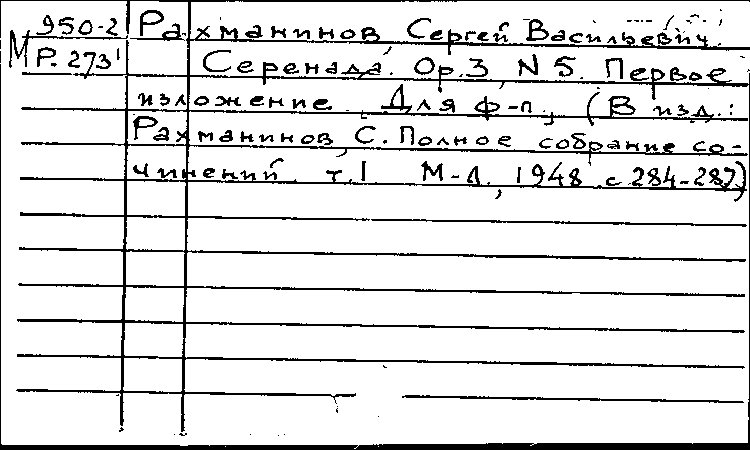 950-2 Рахманинов, Сергей Васильевич.
М Р. 273' Серенада. Op.3, N 5. Первое
изложение. Для ф-п., (В изд.:
Рахманинов, С. Полное собрание со-
чинений. т.I М-Л., 1948, с 284-287)